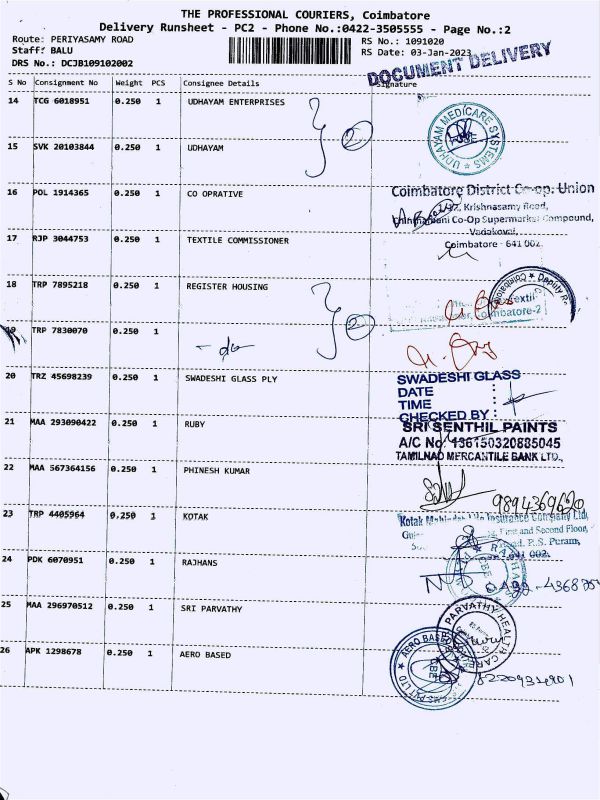 THE PROFESSIONAL COURIERS, Coimbatore
Delivery Runsheet - PC2 - Phone No.:0422-3505555 - Page No.:2
Route: PERIYASAMY ROAD
Staff: BALU
DRS No.: DCJB109102002
RS No.: 1091020
RS Date: 03-Jan-2023
DOCUMENT DELIVERY
S No Consignment No Weight PCS Consignee Details Signature
14 TCG 6018951 0.250 1 UDHAYAM ENTERPRISES
2
UDHAYAM MEDICARE SYSTEMS
15 SVK 20103844 0.250 1 UDHAYAM
16 POL 1914365 0.250 1 CO OPRATIVE
Coimbatore District Co-op. Union
Krishnasamy Road,
Chinthamani Co-Op Supermarket Compound,
Vadakovai,
Coimbatore - 641 002
17 RJP 3044753 0.250 1 TEXTILE COMMISSIONER
18 TRP 7895218 0.250 1 REGISTER HOUSING
2
Deputy
Coimbatore-2
19 TRP 7830070 0.250 1
- do -
20 TRZ 45698239 0.250 1 SWADESHI GLASS PLY
SWADESHI GLASS
DATE :
TIME :
CHECKED BY :
21 MAA 293090422 0.250 1 RUBY
SRI SENTHIL PAINTS
A/C No. 136150320885045
TAMILNAD MERCANTILE BANK LTD.,
22 MAA 567364156 0.250 1 PHINESH KUMAR
9894369620
23 TRP 4405964 0.250 1 KOTAK
Kotak Mahindra Life Insurance Company Ltd
First and Second Floor,
Road, R.S. Puram,
641 002.
24 PDK 6070951 0.250 1 RAJHANS
RAJHANS
CBE
25 MAA 296970512 0.250 1 SRI PARVATHY
PARVATHY HEALTH CARE
26 APK 1298678 0.250 1 AERO BASED
AERO BASED
PVT LTD
CBE